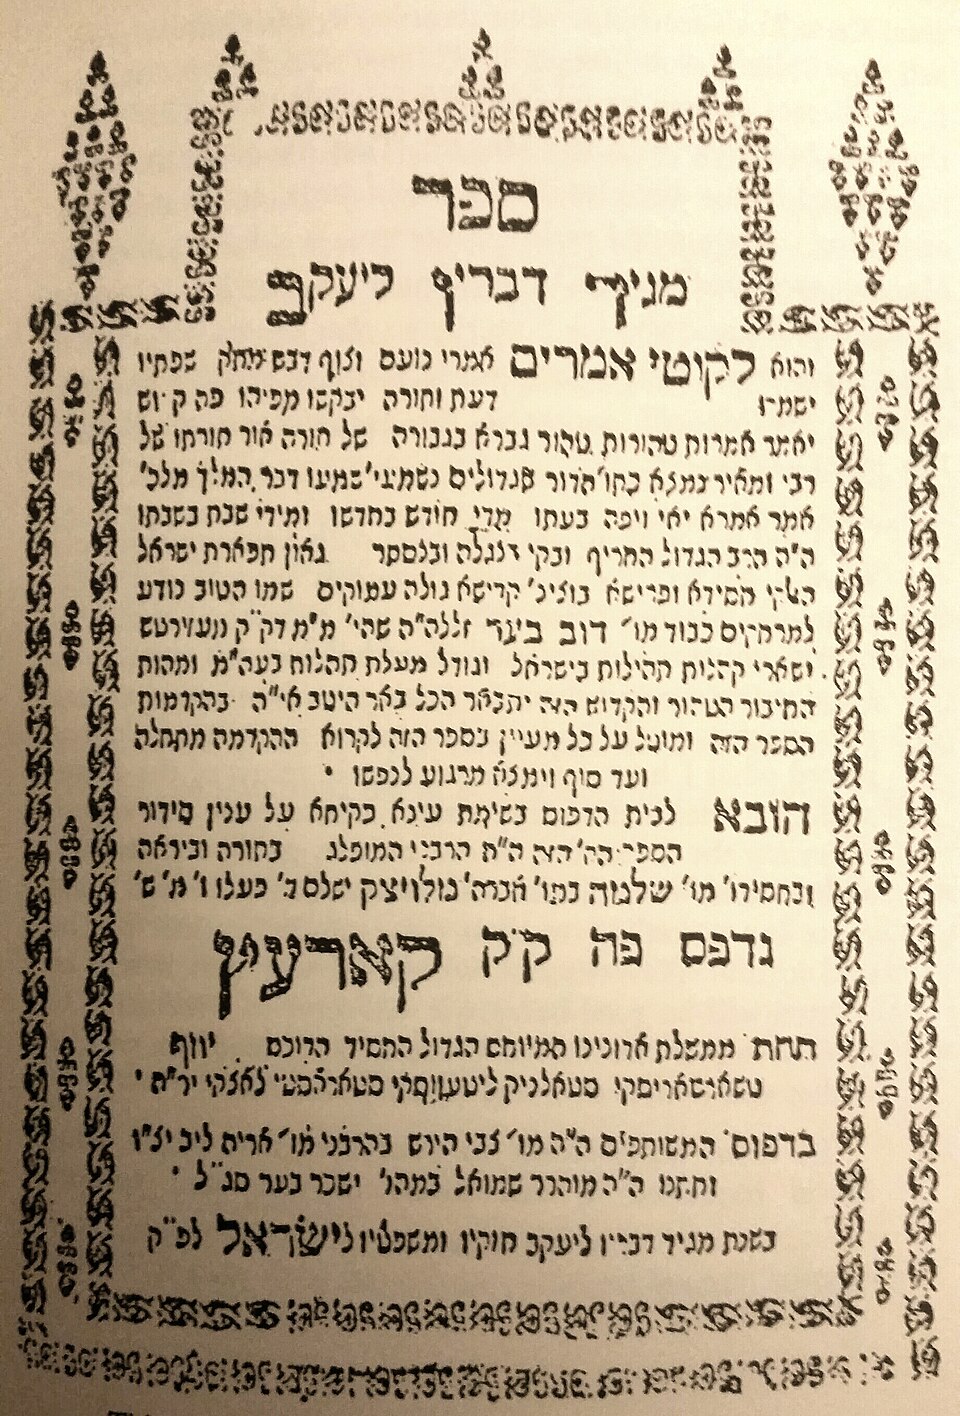 ספר
מגיד דבריו ליעקב
והוא לקוטי אמרים אמרי נועם וצוף דבש מתק שפתיו
ישמרו דעת ותורה יבקשו מפיהו פה קדוש
יאמר אמרות טהורות טהור גברא בגבורה של תורה אור תורתו של
רבי ומאיר נמצא כתו' תדור הגדולים נשמעי' שמעו דבר המלך מלכ'
אמר אמרא יאי ויפה בעתו מדי חודש בחדשו ומידי שבת בשבתו
ה"ה הרב הגדול החריף ובקי בנגלה ובנסתר גאון תפארת ישראל
חסידא ופרישא בוצינ' קדישא גולה עמוקים שמו הטוב נודע
למרחקים כבוד מו' דוב בער זללה"ה שהי' מ"מ דק"ק מעזירטש
ושארי קהלות תהילות בישראל וגודל מעלת תהלות בעה"מ ומהות
החיבור הטהור והקדוש הזה יתבאר הכל באר היטב אי"ה בהקדמות
הספר הזה ומוטל על כל מעיין בספר הזה לקרוא ההקדמה מתחלה
ועד סוף וימצא מרגוע לנפשו
הובא לבית הדפוס בשימת עינא פקיחא על ענין סידור
הספר הזה ה"ה הרבני המופלג בתורה וביראה
ובחסידו' מו' שלמה במו' אברה' מלויצק ישלם ב' פעלו ו' מ' ש'
נדפס פה ק"ק קארעץ
תחת ממשלת אדונינו המיוחס הגדול החסיד הדוכס יוזף
טשארטאריסקי סטאלניק ליטעווסקי סטאראסטי לאצקי יר"ה
בדפוס המשותפים ה"ה מו' צבי הירש בהרבני מו' אריה ליב יצ"ו
וחתנו ה"ה מוהרר שמואל במהו' ישכר בער סג"ל
בשנת מגיד דבריו ליעקב חוקיו ומשפטיו לישראל לפ"ק